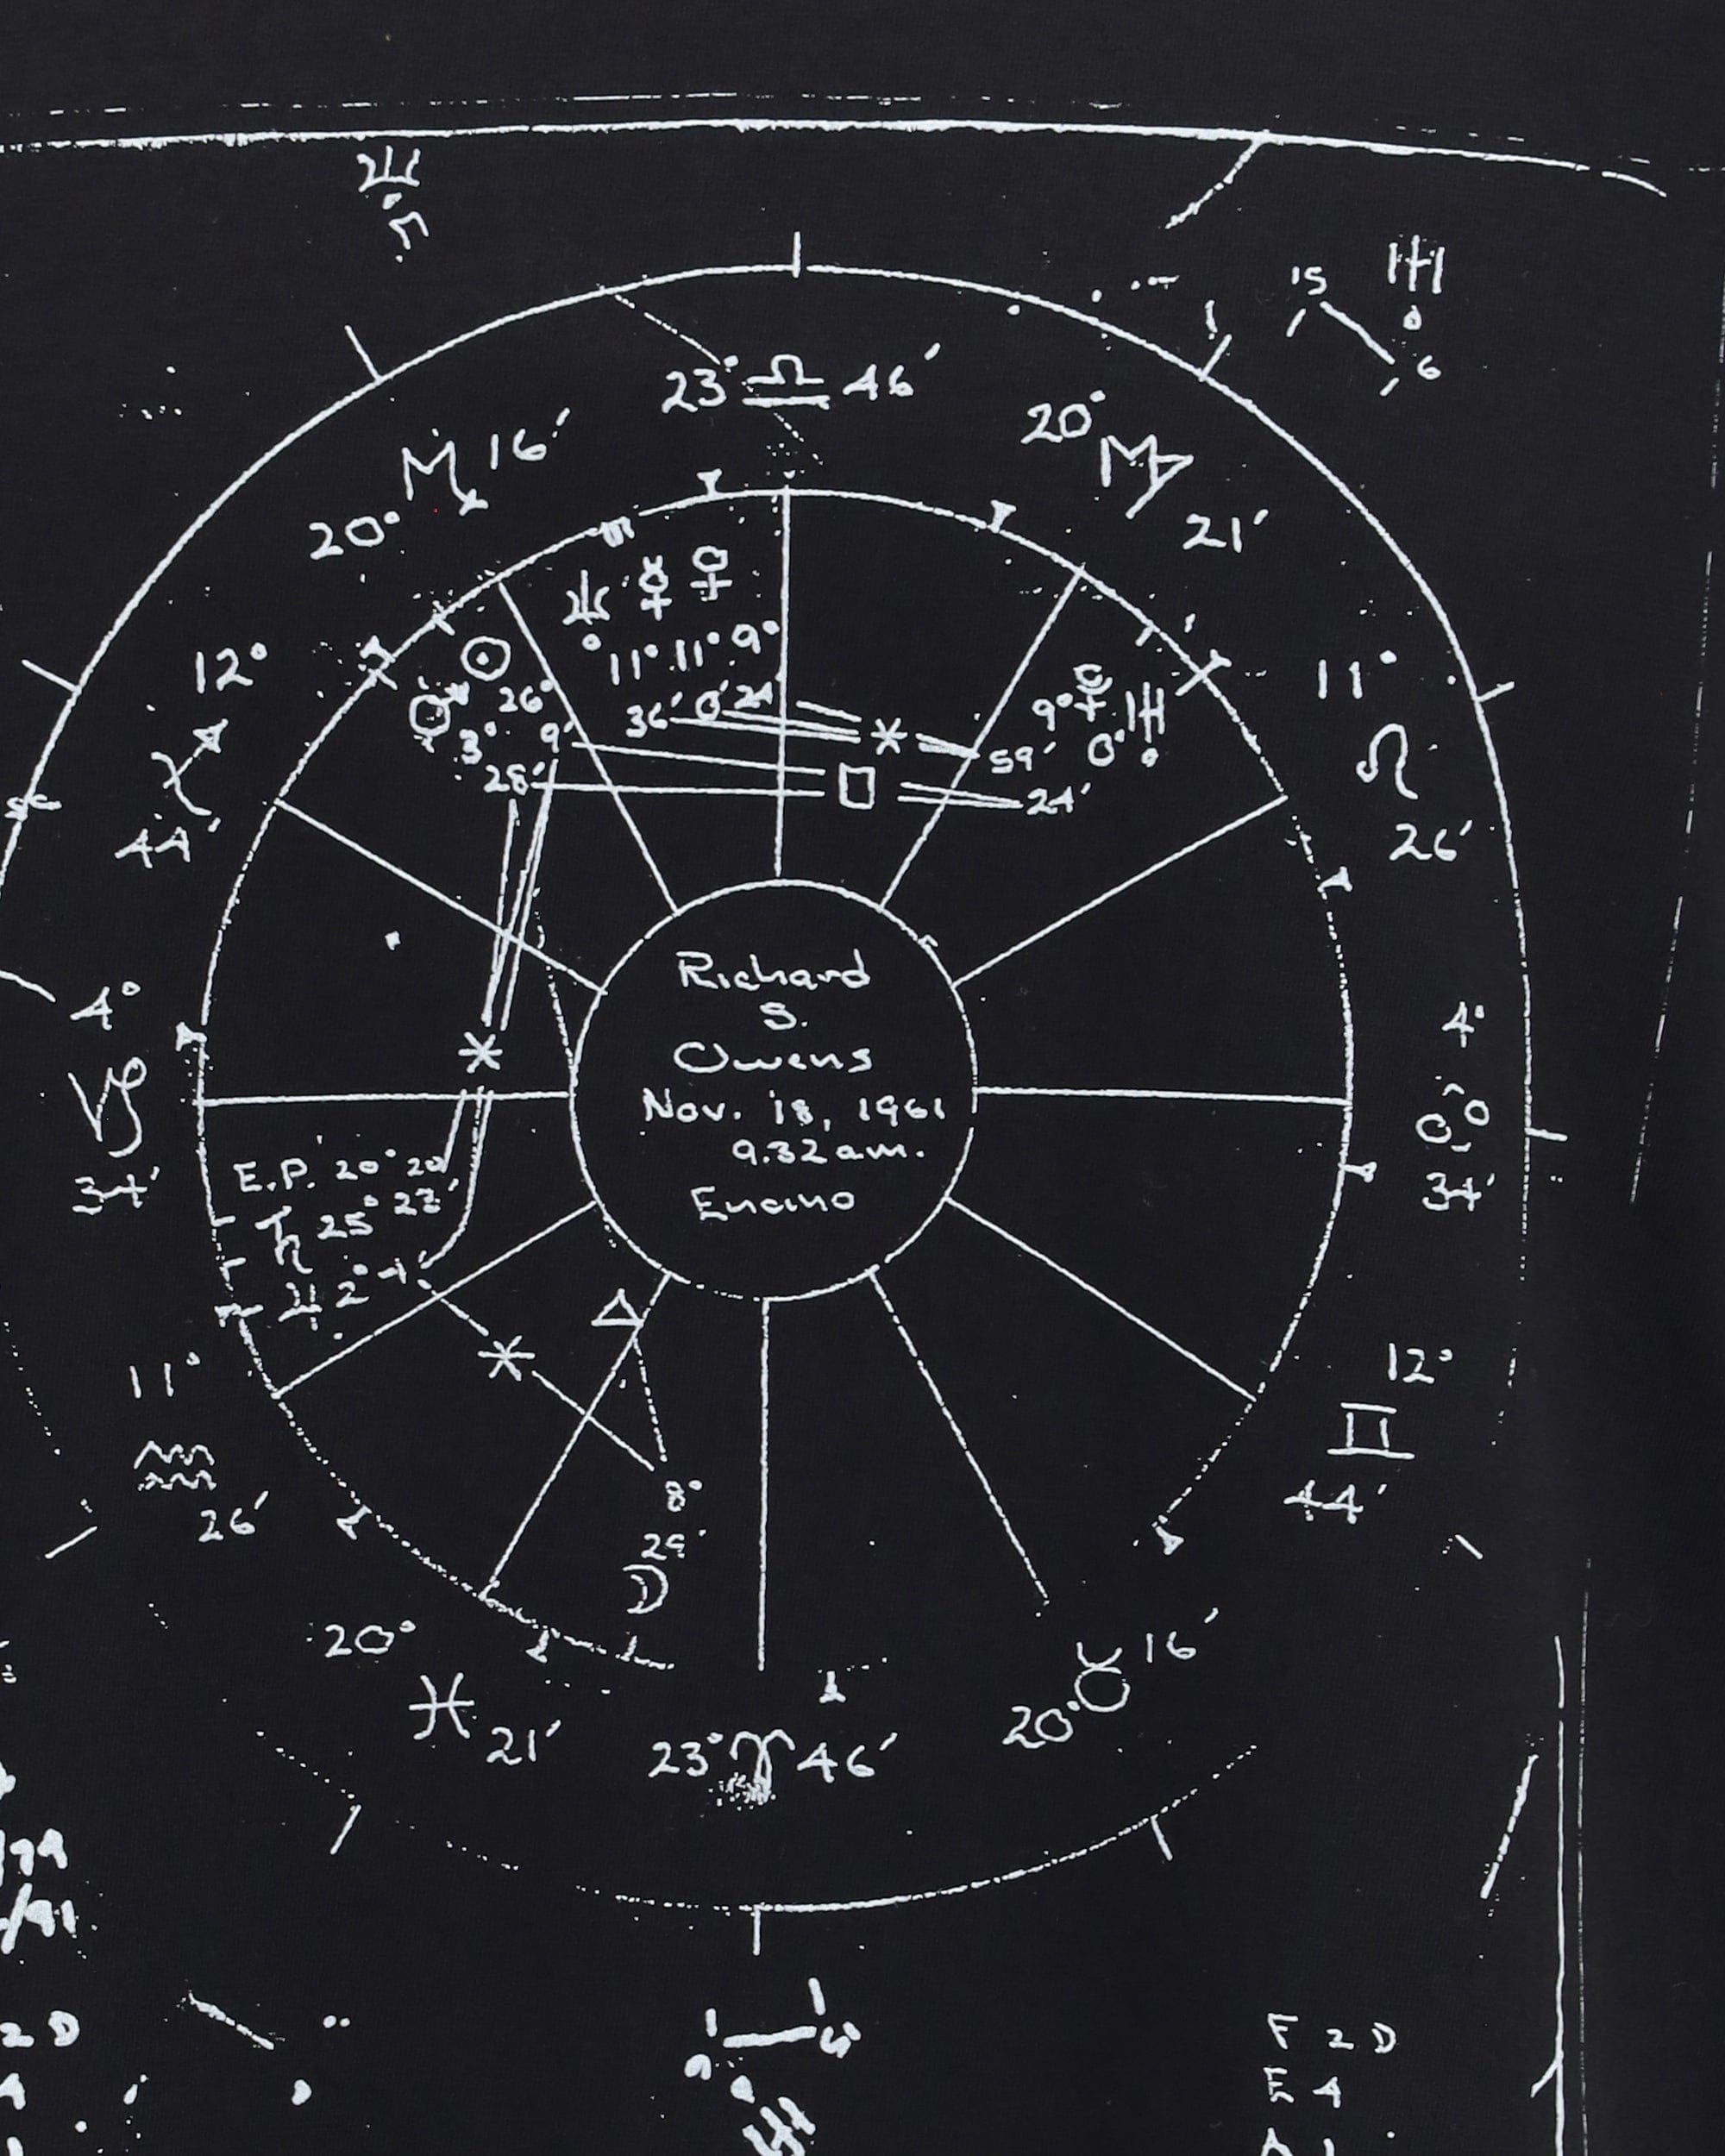 ♆
15 ♅
6
23° ♎ 46′
20° ♏ 16′
20° ♍ 21′
♆ ☿ ♀
11° 11° 9°
36′ 0′ 24′
12° ♐ 44′
☉ 26° 9′
♂ 3° 28′
9° ♇ 59′
♅ 0° 24′
11° ♌ 26′
4° ♑ 34′
Richard
S.
Owens
Nov. 18, 1961
9.32 am.
Encino
4° ♋ 34′
E.P. 20° 20′
♄ 25° 22′
♃ 2° 4′
11° ♒ 26′
12° ♊ 44′
8°
29′
☽
20° ♓ 21′
23° ♈ 46′
20° ♉ 16′
2 D
F 2 D
E 4